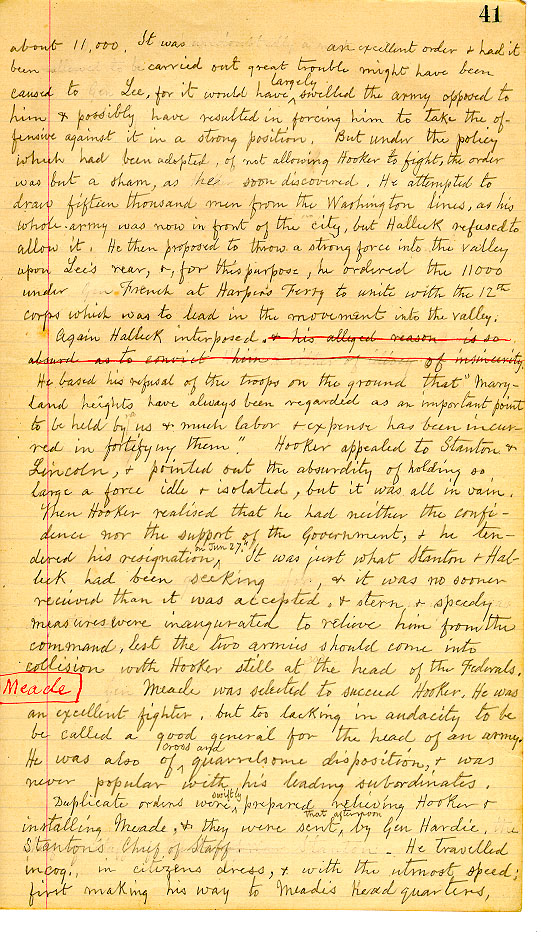 41
about 11,000. It was an excellent order & had it
been carried out great trouble might have been
caused to Gen Lee, for it would have largely swelled the army opposed to
him & possibly have resulted in forcing him to take the of-
fensive against it in a strong position. But under the policy
which had been adopted, of not allowing Hooker to fight, the order
was but a sham, as he soon discovered. He attempted to
draw fifteen thousand men from the Washington lines, as his
whole army was now in front of the city, but Halleck refused to
allow it. He then proposed to throw a strong force into the valley
upon Lee's rear, &, for this purpose, he ordered the 11000
under Gen French at Harper's Ferry to unite with the 12th
corps which was to lead in the movement into the valley.
Again Halleck interposed. & his alleged reason is so
absurd as to convict him of insincerity.
He based his refusal of the troops on the ground that "Mary-
land heights have always been regarded as an important point
to be held by us & much labor & expense has been incur-
red in fortifying them". Hooker appealed to Stanton &
Lincoln, & pointed out the absurdity of holding so
large a force idle & isolated, but it was all in vain.
Then Hooker realised that he had neither the confi-
dence nor the support of the Government, & he ten-
dered his resignation on Jun 27th. It was just what Stanton & Hal-
leck had been seeking, & it was no sooner
received than it was accepted, & stern & speedy
measures were inaugurated to relieve him from the
command, lest the two armies should come into
collision with Hooker still at the head of the Federals.
Meade
Gen Meade was selected to succeed Hooker. He was
an excellent fighter, but too lacking in audacity to be
be called a good general for the head of an army.
He was also of cross and quarrelsome disposition, & was
never popular with his leading subordinates.
Duplicate orders were swiftly prepared relieving Hooker &
installing Meade, & they were sent, that afternoon by Gen Hardie,
Stanton's Chief of Staff. He travelled
incog., in citizens dress, & with the utmost speed;
first making his way to Meade's Head quarters,